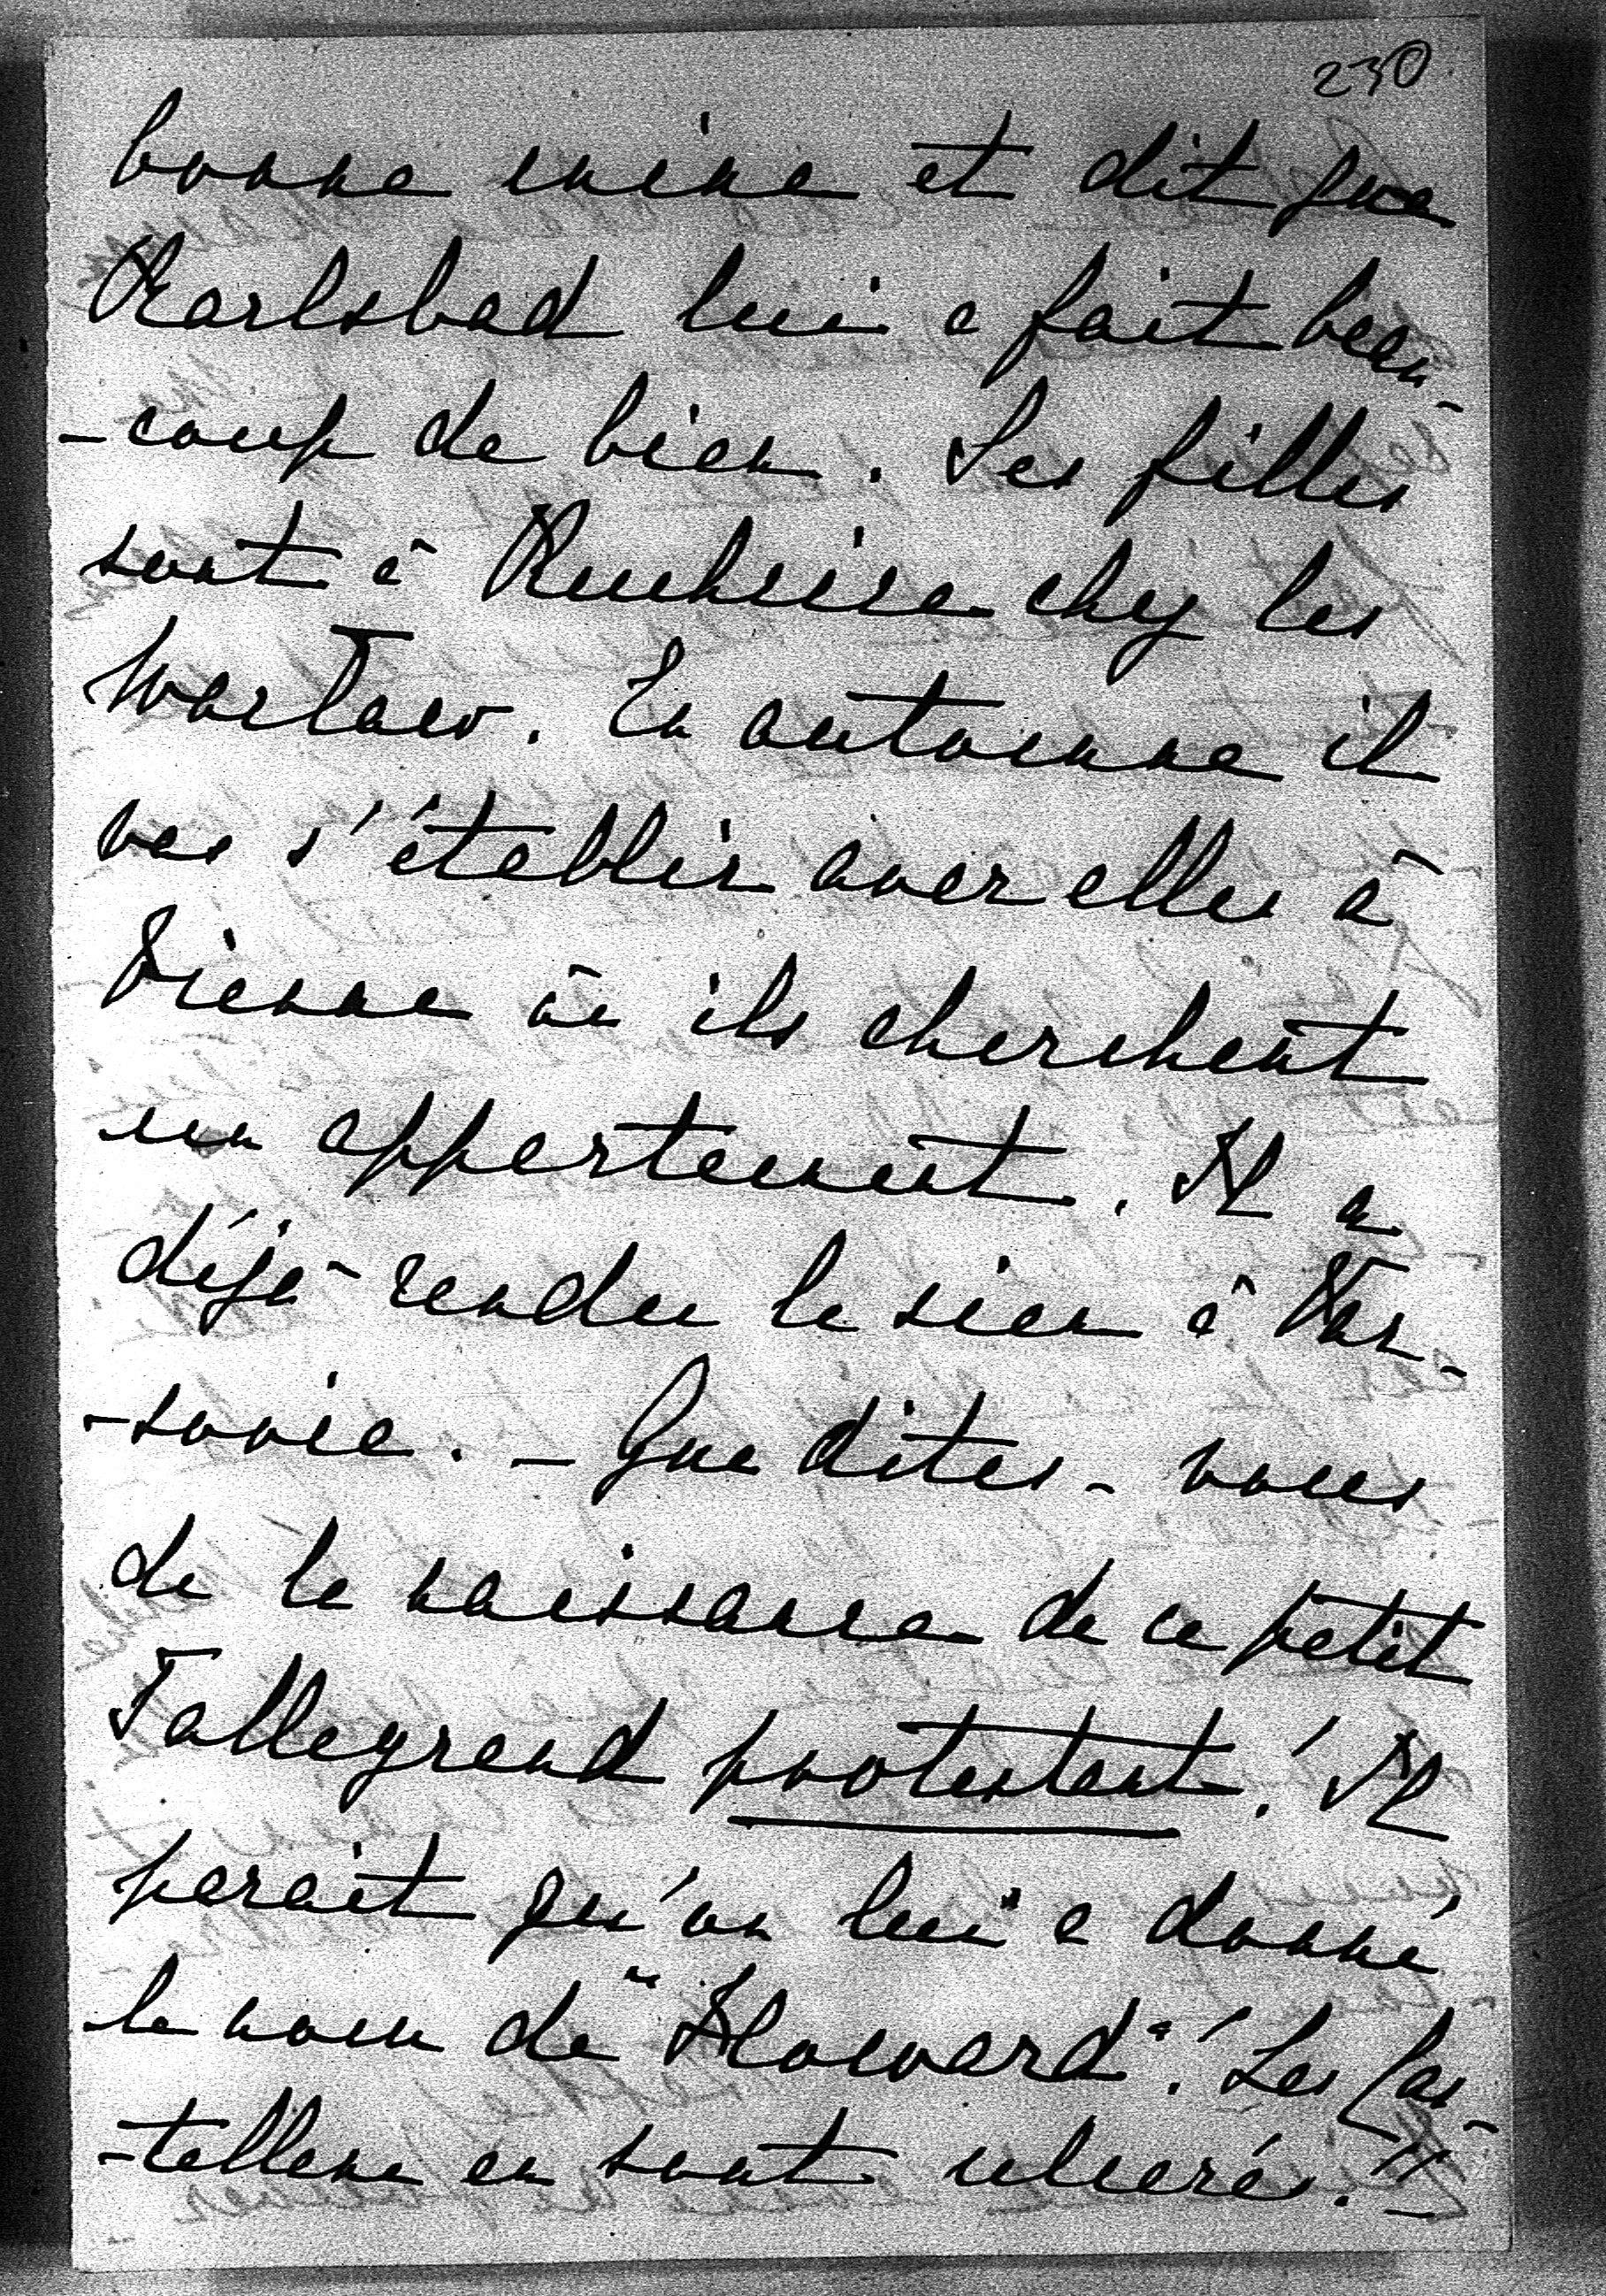 230
bonne mine et dit que
Karlsbad lui a fait beau-
-coup de bien. Ses filles
sont à Rucheira chez les
Wartaw. En automne il
va s'établir avec elles à
Vienne où ils cherchent
un appartement. Il a
déjà rendu le sien à Var-
-sovie. - Que dites-vous
de la naissance de ce petit
Talleyrand protestant! Il
parait qu'on lui a donné
le nom de "Howard"! Les Cas-
-tellane en sont ulcérés!! -